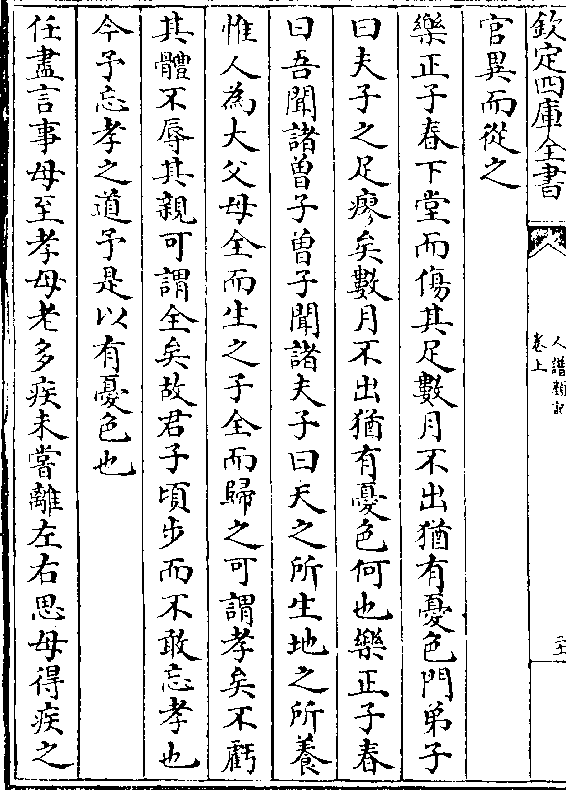 欽定四庫全書
人譜類記
卷上
官異而從之
樂正子春下堂而傷其足數月不出猶有憂色門弟子
曰夫子之足瘳矣數月不出猶有憂色何也樂正子春
曰吾聞諸曾子曾子聞諸夫子曰天之所生地之所養
惟人為大父母全而生之子全而歸之可謂孝矣不虧
其體不辱其親可謂全矣故君子頃步而不敢忘孝也
今予忘孝之道予是以有憂色也
任盡言事母至孝母老多疾未嘗離左右思母得疾之